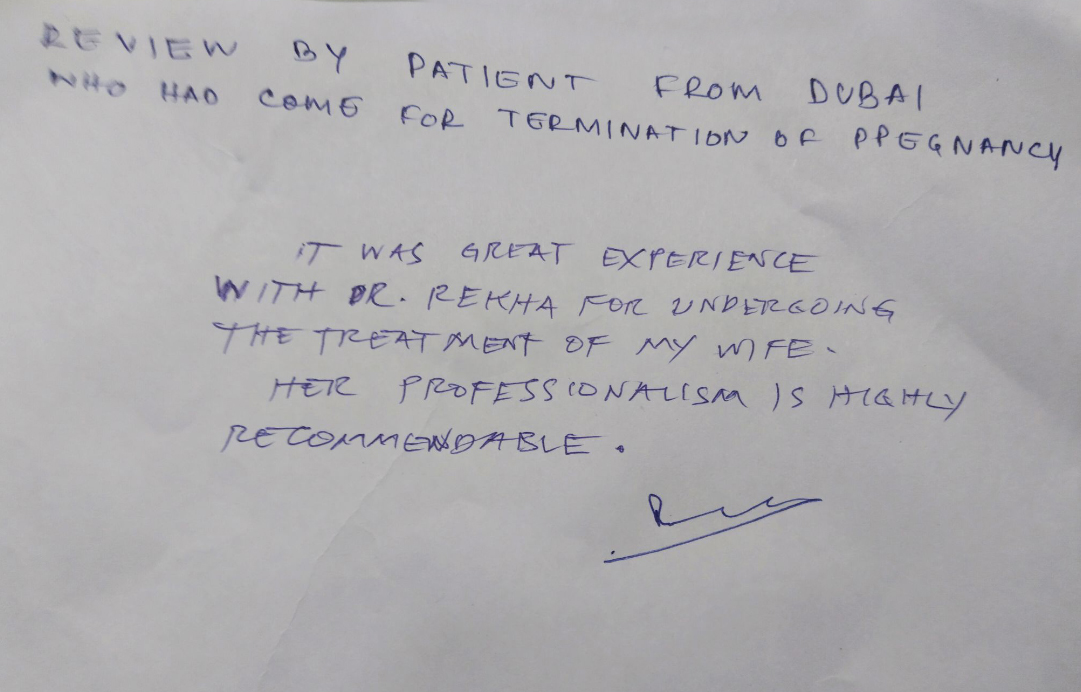 REVIEW BY PATIENT FROM DUBAI
WHO HAD COME FOR TERMINATION OF PPEGNANCY
IT WAS GREAT EXPERIENCE
WITH DR. REKHA FOR UNDERGOING
THE TREATMENT OF MY WIFE.
HER PROFESSIONALISM IS HIGHLY
RECOMMENDABLE.